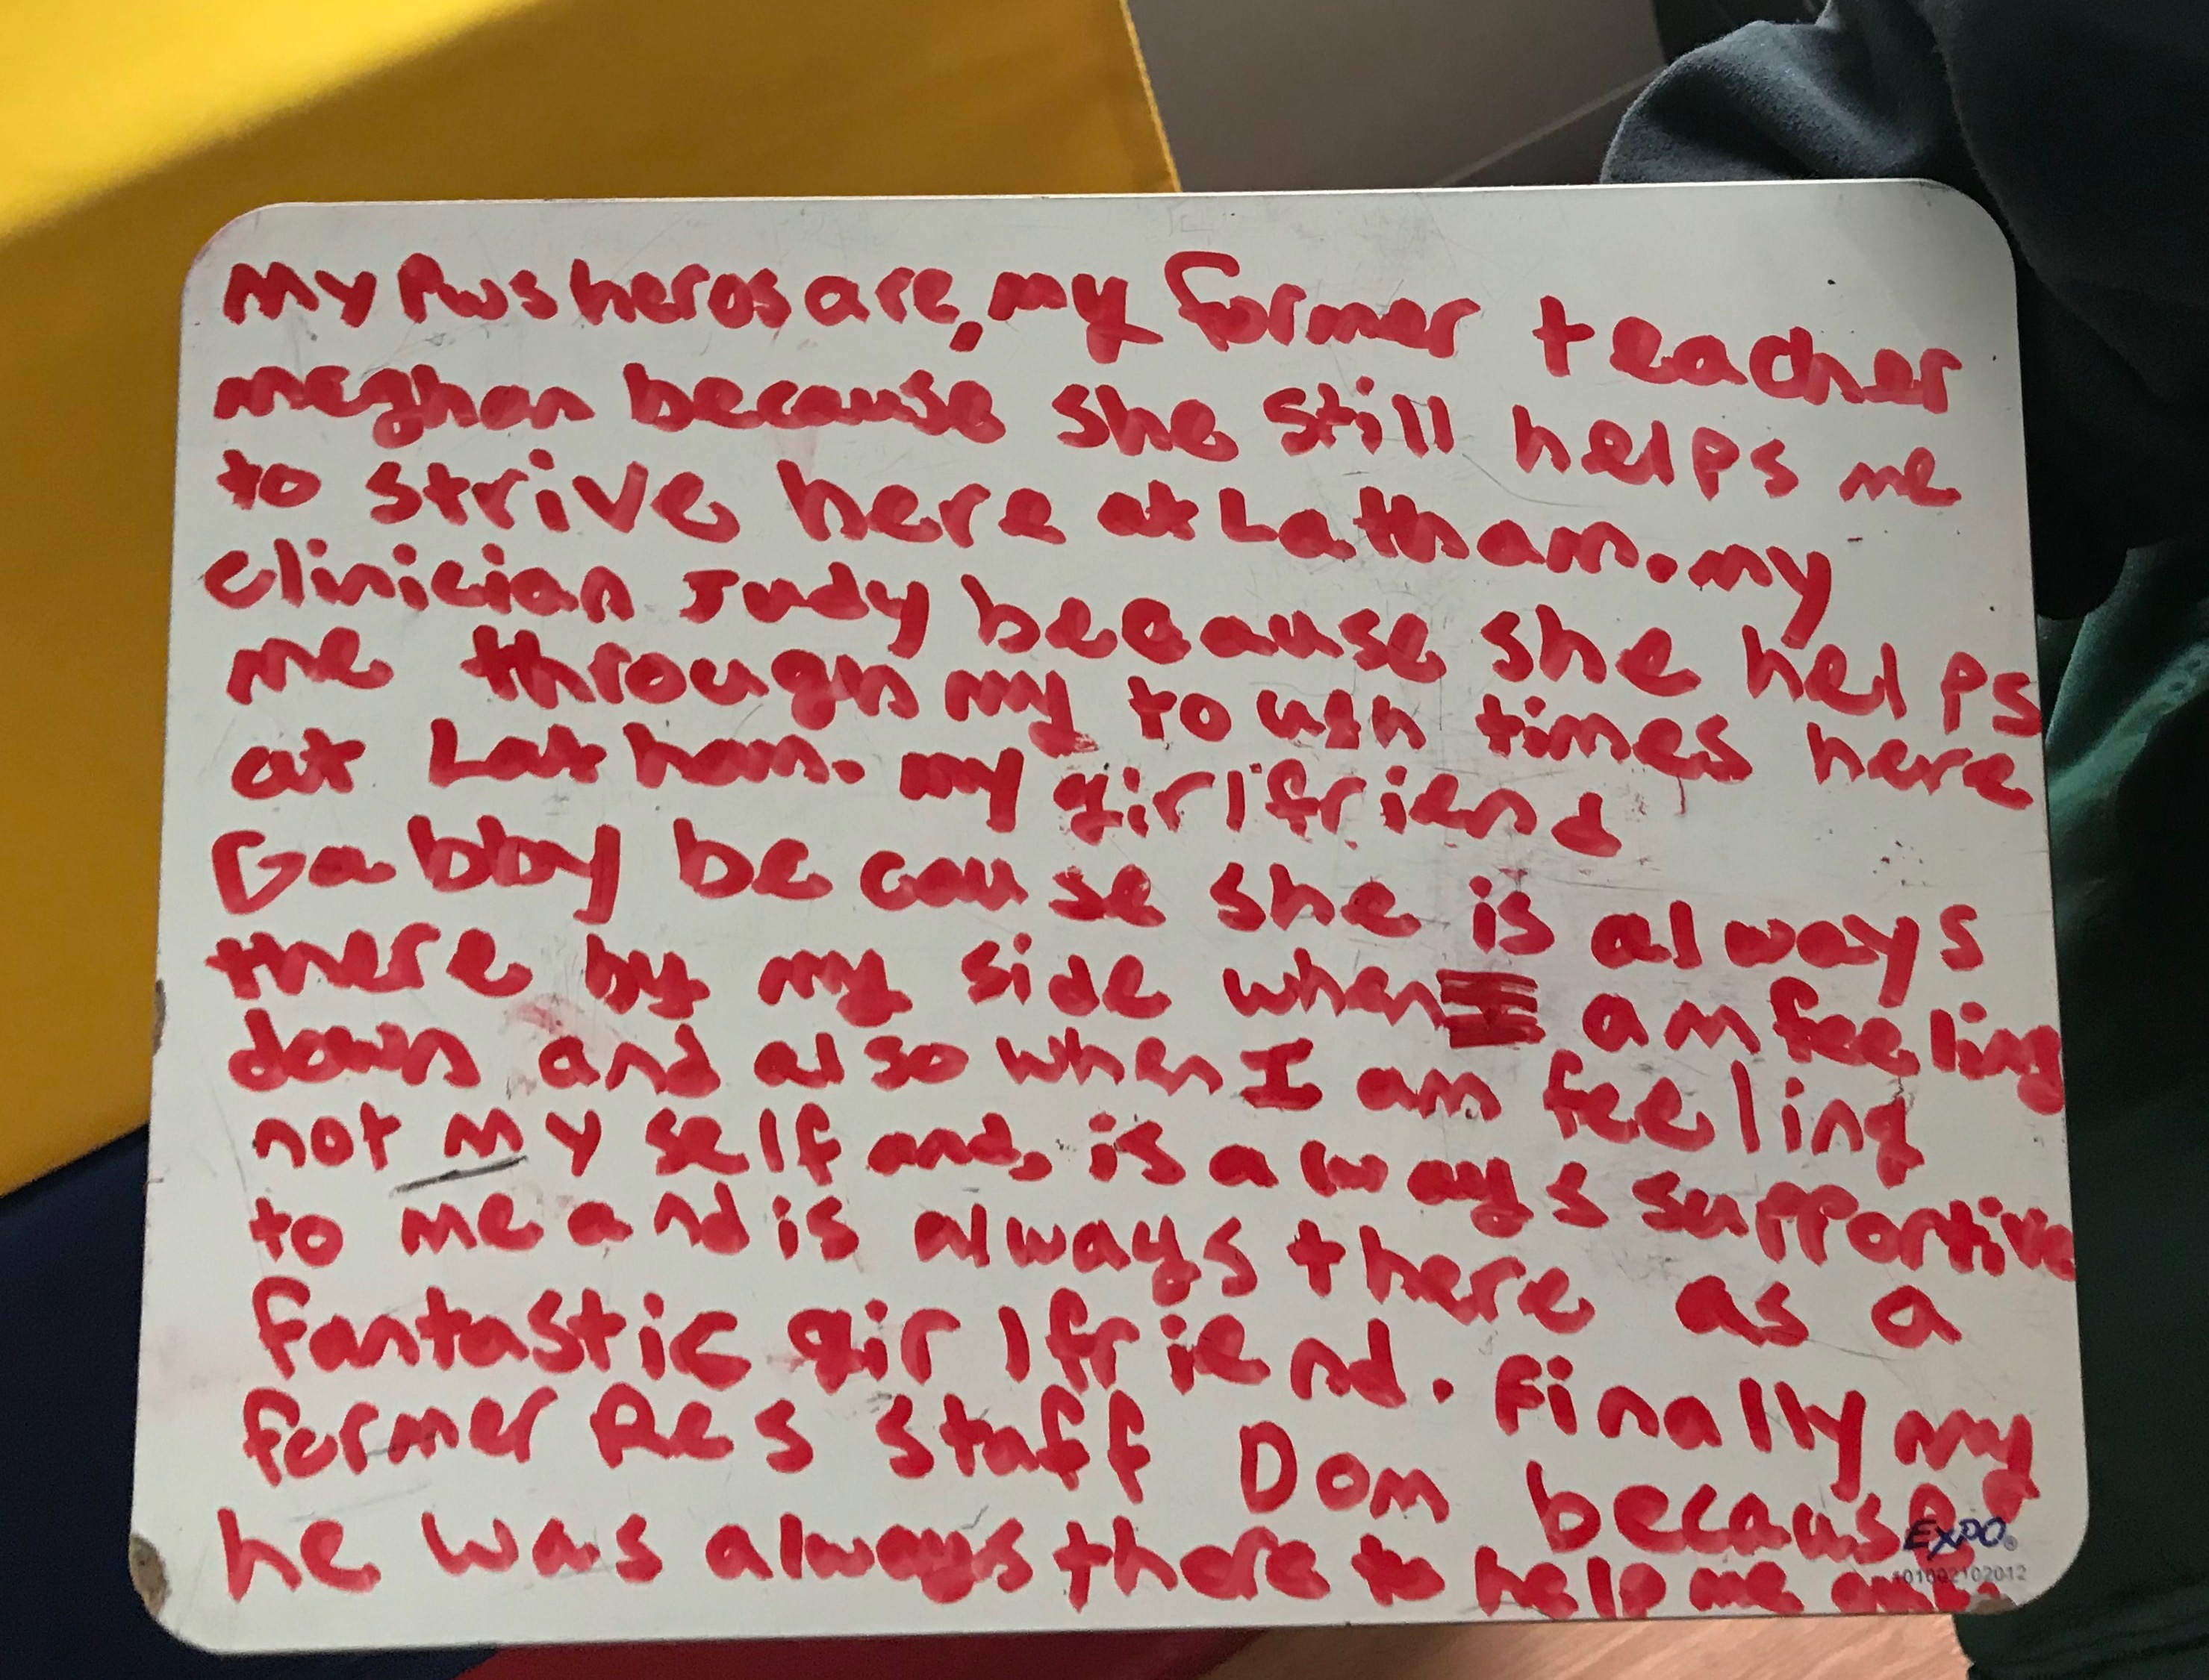 My Pws heros are, my former teacher
meghan because she still helps me
to strive here at Latham. my
clinician Judy because she helps
me through my tough times here
at Latham. my girlfriend
Gabby because she is always
there by my side when I am feeling
down and also when I am feeling
not my self and, is always supportive
to me and is always there as a
fantastic girlfriend. Finally my
former Res staff Dom because
he was always there to help me out.
EXPO
101002102012